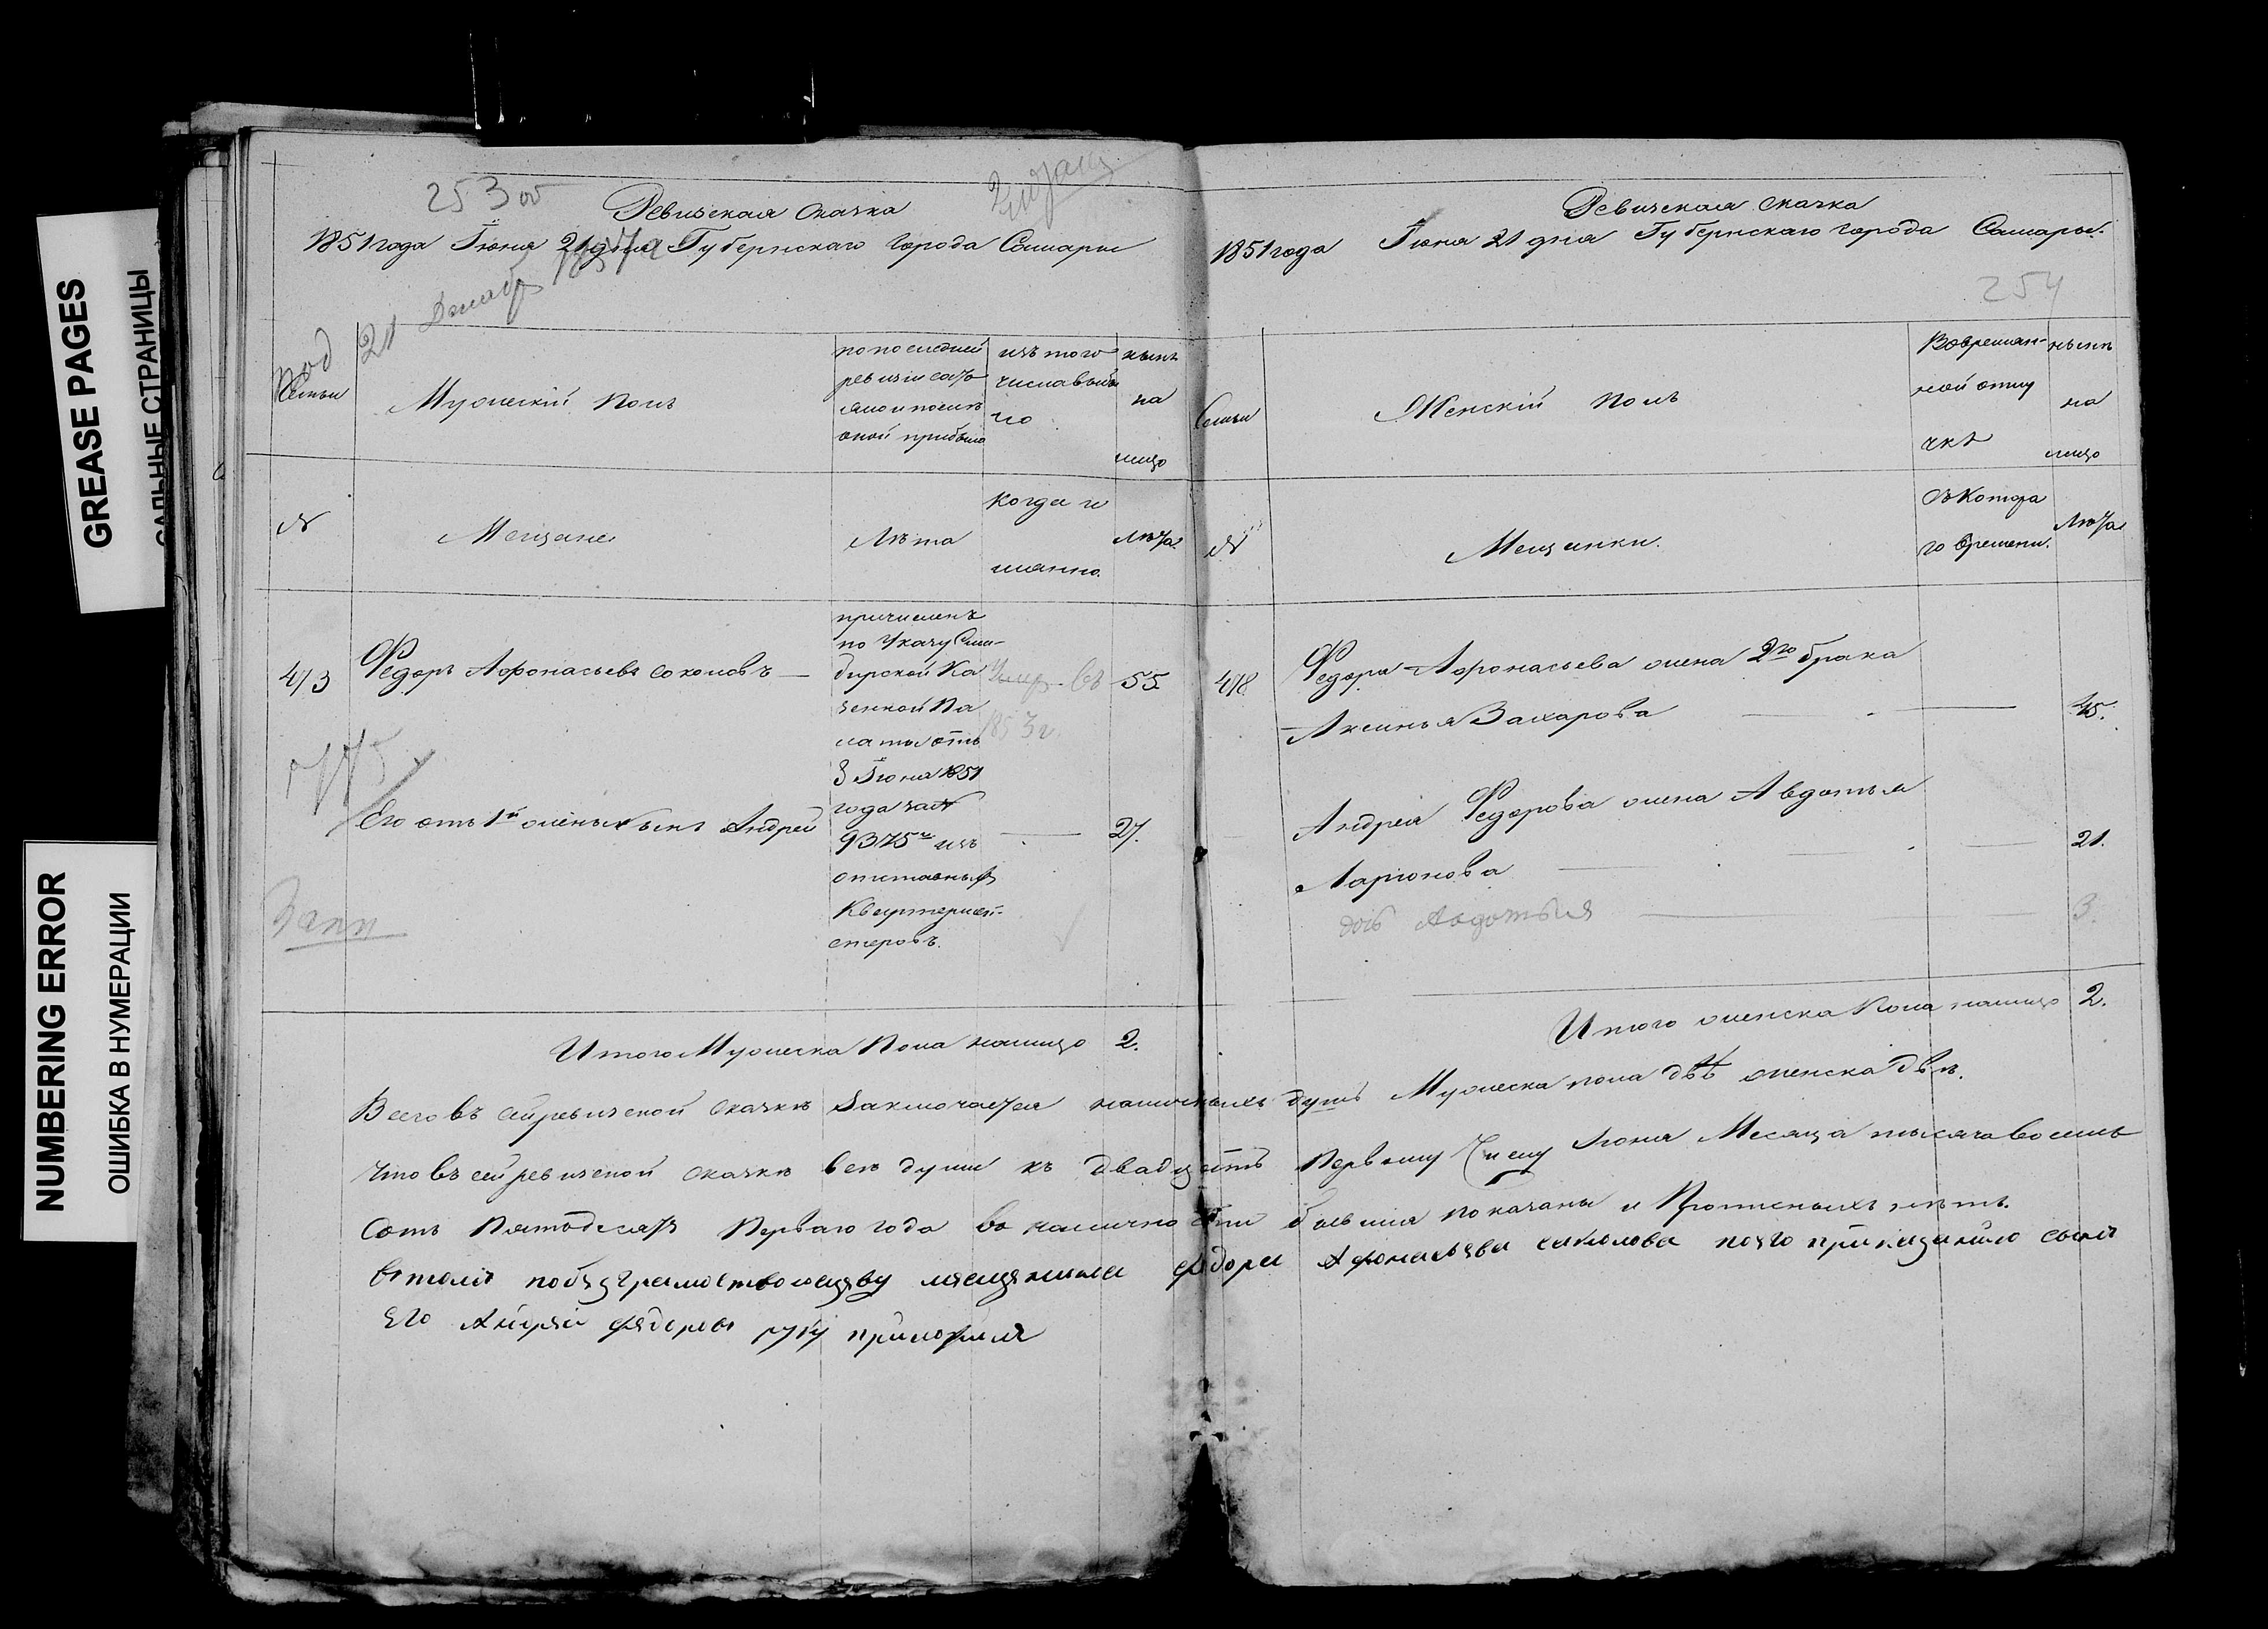 GREASE PAGES
САЛЬНЫЕ СТРАНИЦЫ
NUMBERING ERROR
ОШИБКА В НУМЕРАЦИИ
253 об
Ревизская сказка
1851 года Іюня 21 дня Губернскаго города Самары
21 Декабр 1857 г
Семьи
Мужескій полъ
по последней
ревизіи сос
оной прибыло
изъ того
числа выбы
ло
нынѣ
на
лицо
№
Мещане
Лѣта
когда и
имянно.
Лѣта
473
Федоръ Афонасьевъ соколовъ —
причисленъ
по Указу Сим-
бирской Ка
зенной Па
латы отъ
3 Іюня 1851
года за №
9375м изъ
отставных
Квартермей-
стеровъ.
Умер. въ
1853 г.
55
Его отъ 1й жены сынъ Андрей
27.
Ревизская сказка
1851 года Іюня 21 дня Губернскаго города Самары.
254
Семьи
Женскій полъ
Вовремян-
ной отлу
чкѣ
нынѣ
на
лицо
№
Мещанки.
Съ котора
го времени.
Лѣта
478
Федора Афонасьева жена 2го брака
Аксинья Захарова
45.
Андрея Федорова жена Авдотья
Ларионова
21.
дочь Авдотья
3.
Итого Мужеска Пола налицо 2.
Итого женска Пола налицо 2.
Всего въ сей ревизской сказкѣ заключается наличныхъ душъ Мужеска пола двѣ женска двѣ.
Что въ сей ревизской сказкѣ все души къ двадцать Первому Числу Іюня Месяца тысяча восемь
сотъ Пятдесят Перваго года въ наличности бывшия показаны и Прописныхъ нѣтъ.
втомъ побезграмотствомещеву мещанина федора Афонасьева саколова поего приказанию сынъ
его Андрей федоровъ руку приложилъ